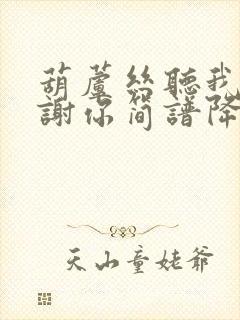 葫蘆絲聽我
謝你簡譜降
天山童姥爺